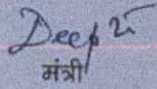 Deep
मंत्री